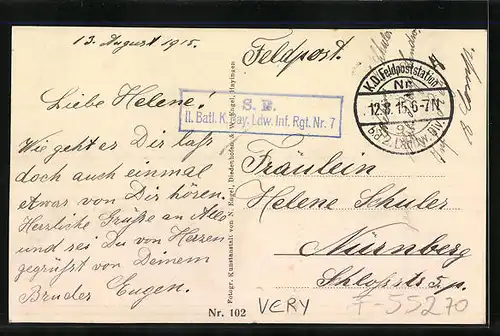 13. August 1915.
Feldpost.
Liebe Helene!
S. B.
II. Batl. K. Bay. Ldw. Inf. Rgt. Nr. 7
K.D. Feldpoststation
Nr.
12.8.15.6-7N
Wie geht es Dir laß
doch auch einmal
etwas von Dir hören.
Herzliche Grüße an Alle
und sei Du von Herzen
gegrüßt von Deinem
Bruder Eugen.
Fotogr. Kunstanstalt von N. Engel, Diedenhofen & W. Engel, Hayingen
Fräulein
Helene Schuler
Nürnberg
Schlosstr.
Nr. 102
VERY
F-55270